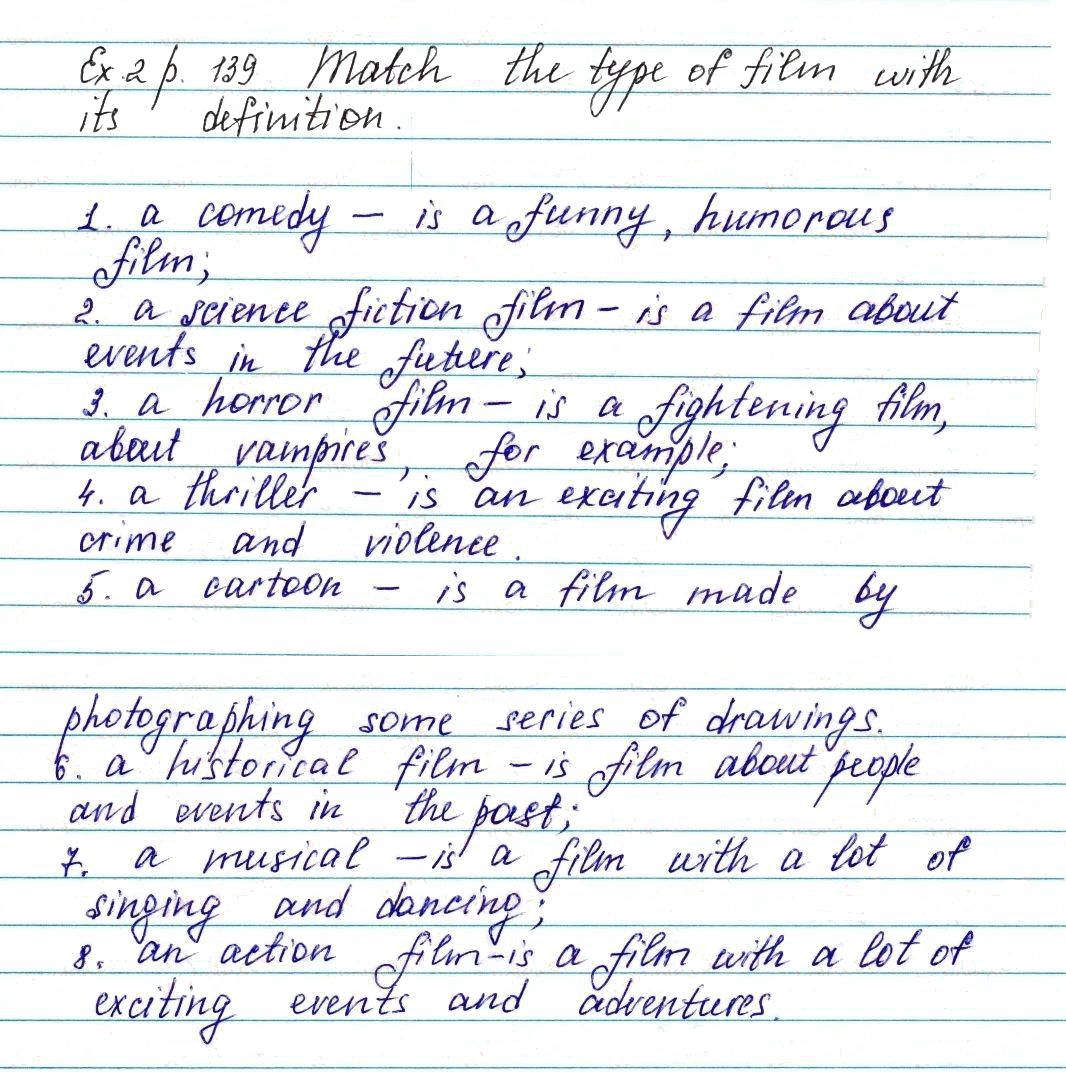 Ex. 2 p. 139 Match the type of film with
its definition.
1. a comedy – is a funny, humorous
film;
2. a science fiction film – is a film about
events in the future;
3. a horror film – is a fightening film,
about vampires, for example;
4. a thriller – is an exciting film about
crime and violence.
5. a cartoon – is a film made by
photographing some series of drawings.
6. a historical film – is film about people
and events in the past;
7. a musical – is a film with a lot of
singing and dancing;
8. an action film – is a film with a lot of
exciting events and adventures.